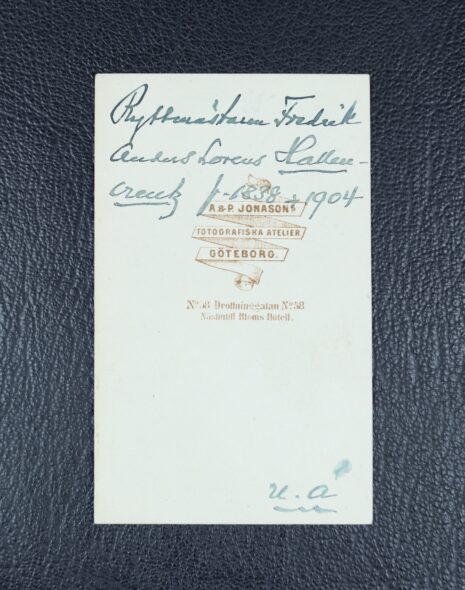 Ryttmästaren Fredrik
Anders Lorens Hallen-
creutz f. 1838 ‡ 1904
A & P. JONASONS
FOTOGRAFISKA ATELIER
GÖTEBORG.
No. 58 Drottninggatan No. 58
Näst intill Bloms Hotell.
u. å